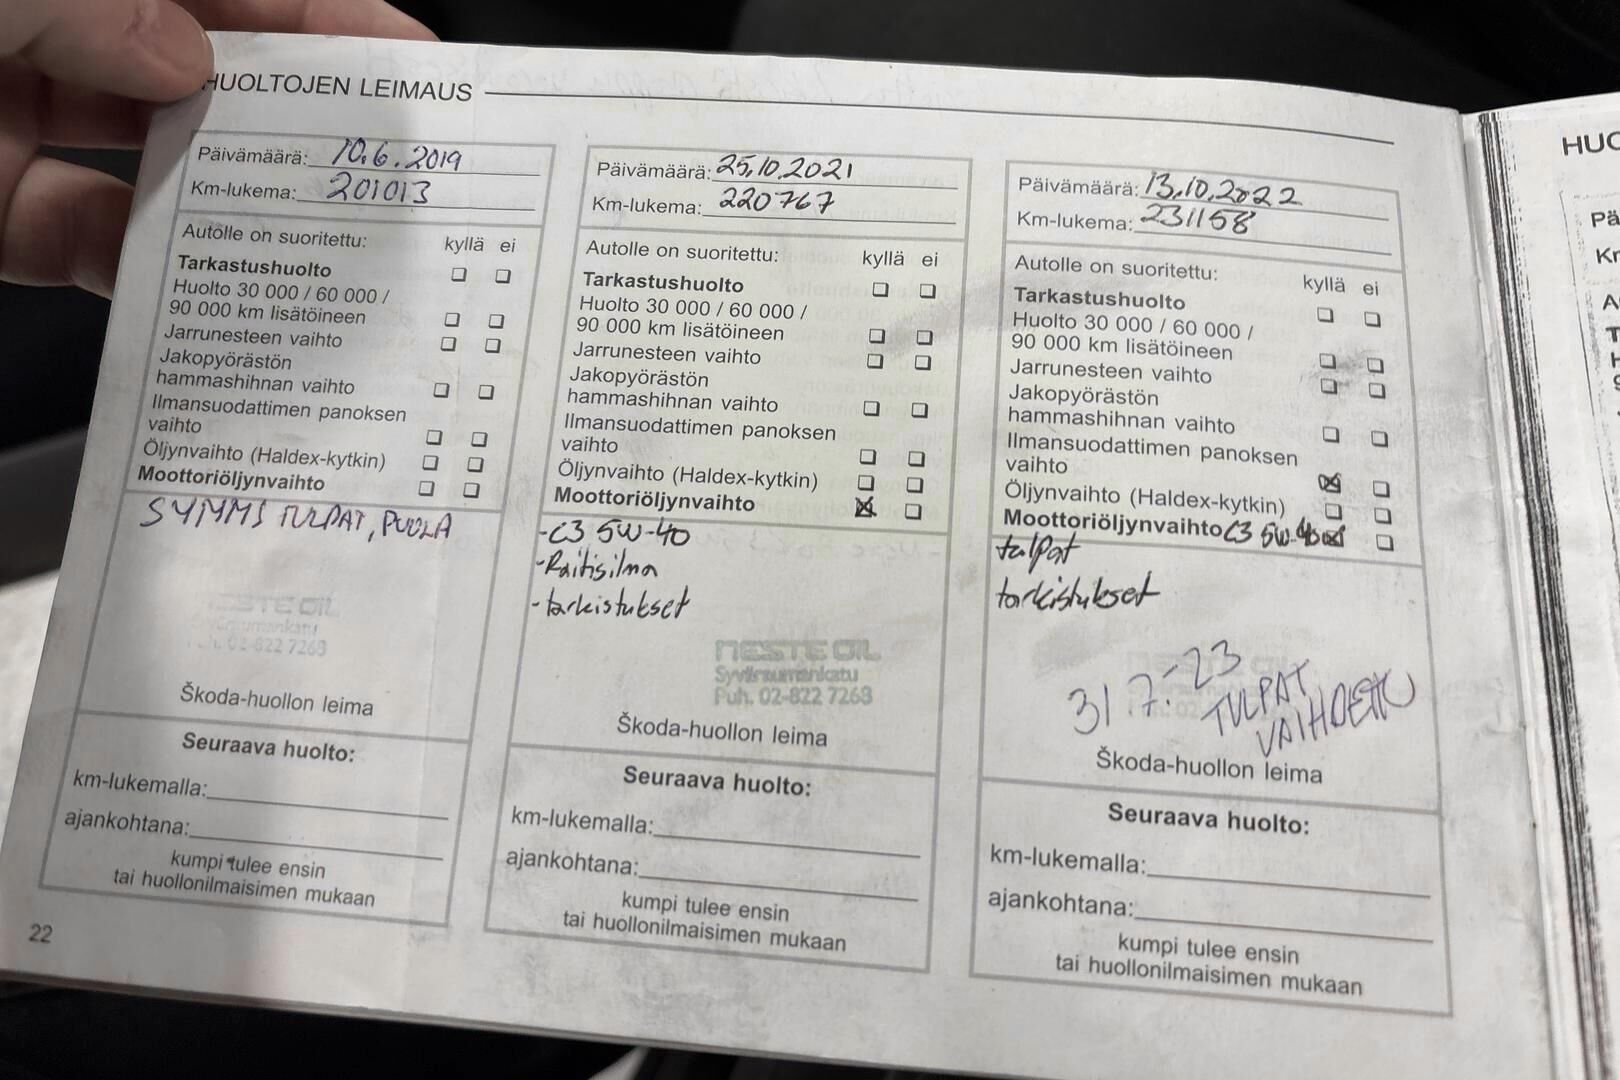 HUOLTOJEN LEIMAUS
Päivämäärä: 10.6.2019
Km-lukema: 201013
Autolle on suoritettu: kyllä ei
Tarkastushuolto
Huolto 30 000 / 60 000 /
90 000 km lisätöineen
Jarrunesteen vaihto
Jakopyörästön
hammashihnan vaihto
Ilmansuodattimen panoksen
vaihto
Öljynvaihto (Haldex-kytkin)
Moottoriöljynvaihto
TULPAT, PUOLA
NESTE OIL
Syväraumankatu
Puh. 02-822 7268
Škoda-huollon leima
Seuraava huolto:
km-lukemalla:
ajankohtana:
kumpi tulee ensin
tai huollonilmaisimen mukaan
22
Päivämäärä: 25.10.2021
Km-lukema: 220767
Autolle on suoritettu: kyllä ei
Tarkastushuolto
Huolto 30 000 / 60 000 /
90 000 km lisätöineen
Jarrunesteen vaihto
Jakopyörästön
hammashihnan vaihto
Ilmansuodattimen panoksen
vaihto
Öljynvaihto (Haldex-kytkin)
Moottoriöljynvaihto
-C3 5W-40
-Raitisilma
-tarkistukset
NESTE OIL
Syväraumankatu
Puh. 02-822 7268
Škoda-huollon leima
Seuraava huolto:
km-lukemalla:
ajankohtana:
kumpi tulee ensin
tai huollonilmaisimen mukaan
Päivämäärä: 13.10.2022
Km-lukema: 231158
Autolle on suoritettu: kyllä ei
Tarkastushuolto
Huolto 30 000 / 60 000 /
90 000 km lisätöineen
Jarrunesteen vaihto
Jakopyörästön
hammashihnan vaihto
Ilmansuodattimen panoksen
vaihto
Öljynvaihto (Haldex-kytkin)
Moottoriöljynvaihto C3 5W-40
tulpat
tarkistukset
31.7.-23
TULPAT
VAIHDETTU
Škoda-huollon leima
Seuraava huolto:
km-lukemalla:
ajankohtana:
kumpi tulee ensin
tai huollonilmaisimen mukaan